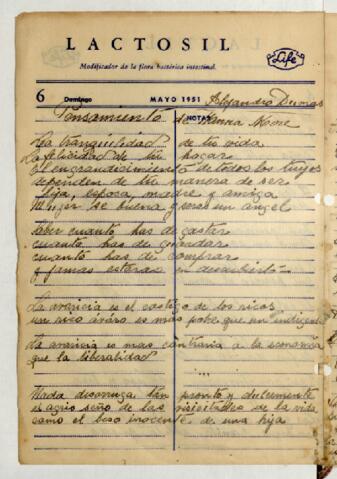 LACTOSIL
Modificador de la flora bactérica intestinal.
Life
6 Domingo MAYO 1951 Alejandro Dumas
NOTAS
Pensamiento de
La tranquiledad de tu vida
La felicidad de tu hogar
el engrandicimiento de todos los tuyos
dependen de tu manera de ser
hija, esposa, madre y amiga
Mujer se buena y seras un angel
Saber cuanto has de gastar
cuanto has de guardar
cuanto has de comprar
y jamas estaras en descubierto
La avaricia es el castigo de los ricos
un rico avaro es mas pobre que un indigente
La avaricia es mas contraria a la economia
que la liberalidad
Nada desarruga tan pronto y dulcemente
el agrio seño de las de la vida
como el beso inocente de una hija